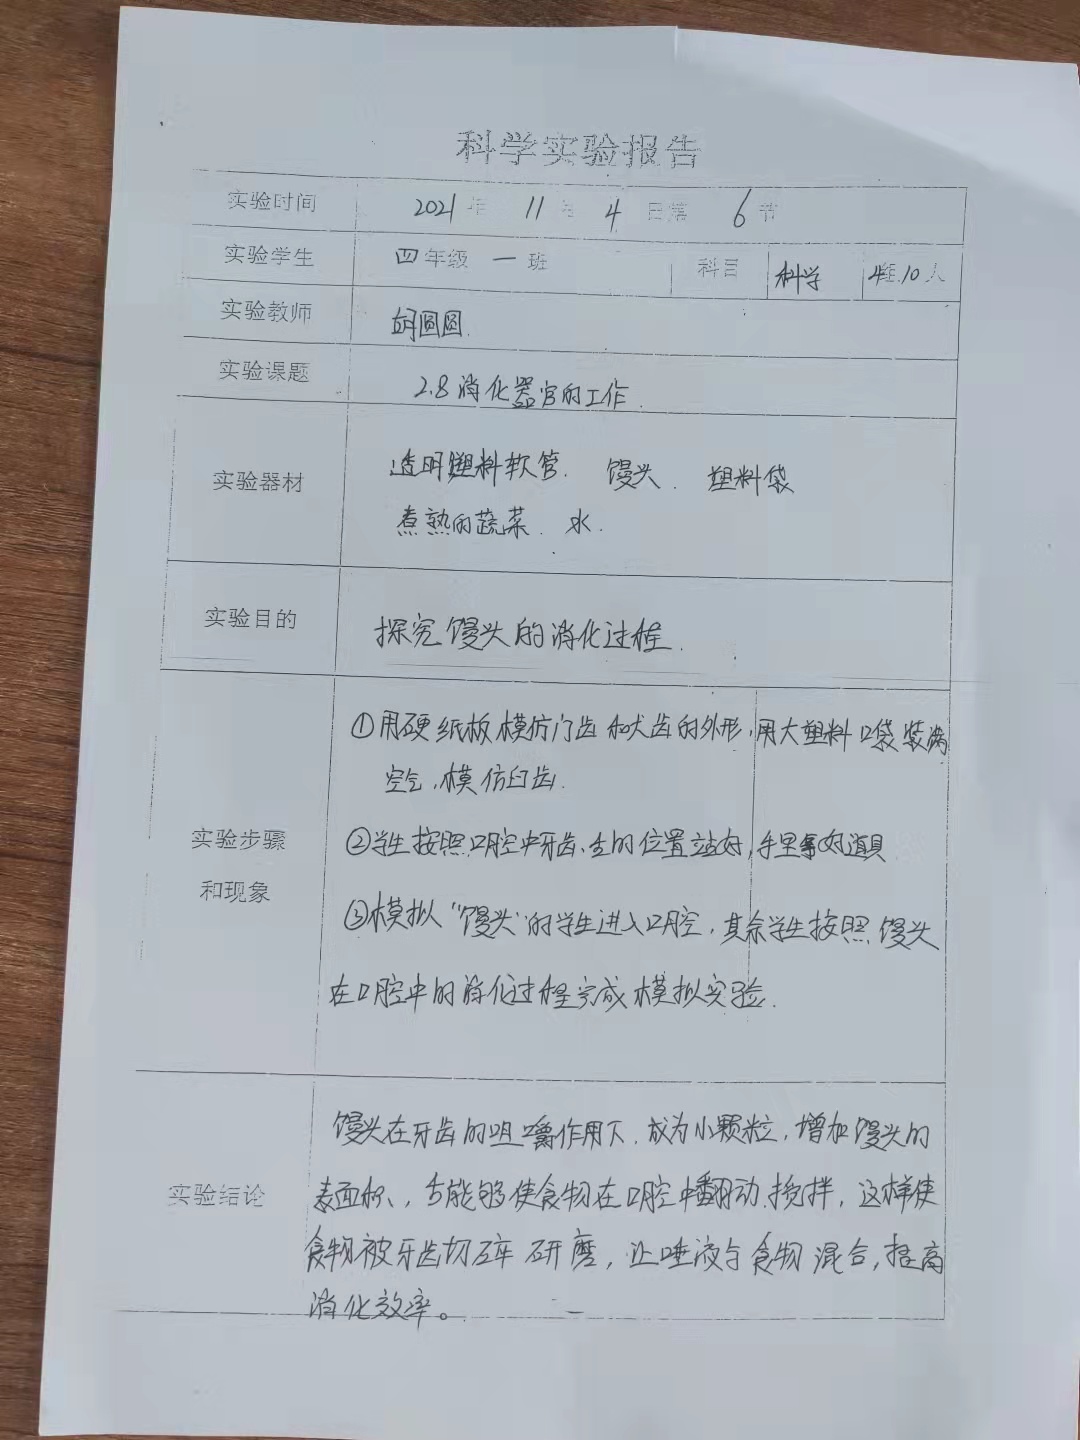 科学实验报告
实验时间 2021年 11月 4日第 6节
实验学生 四年级 一班 科目 科学 4组.10人
实验教师 胡圆圆.
实验课题 2.8消化器官的工作.
实验器材
透明塑料软管. 馒头. 塑料袋
煮熟的蔬菜. 水.
实验目的 探究馒头的消化过程.
实验步骤
和现象
①用硬纸板模仿门齿和犬齿的外形,用大塑料口袋装满
空气,模仿臼齿.
②学生按照口腔中牙齿、的位置站好,手里拿好道具
③模拟“馒头”的学生进入口腔,其余学生按照馒头
在口腔中的消化过程完成模拟实验.
实验结论
馒头在牙齿的咀嚼作用下.成为小颗粒,增加馒头的
表面积、,能够使食物在口腔中翻动.搅拌,这样使
食物被牙齿切碎研磨,让唾液与食物混合,提高
消化效率。